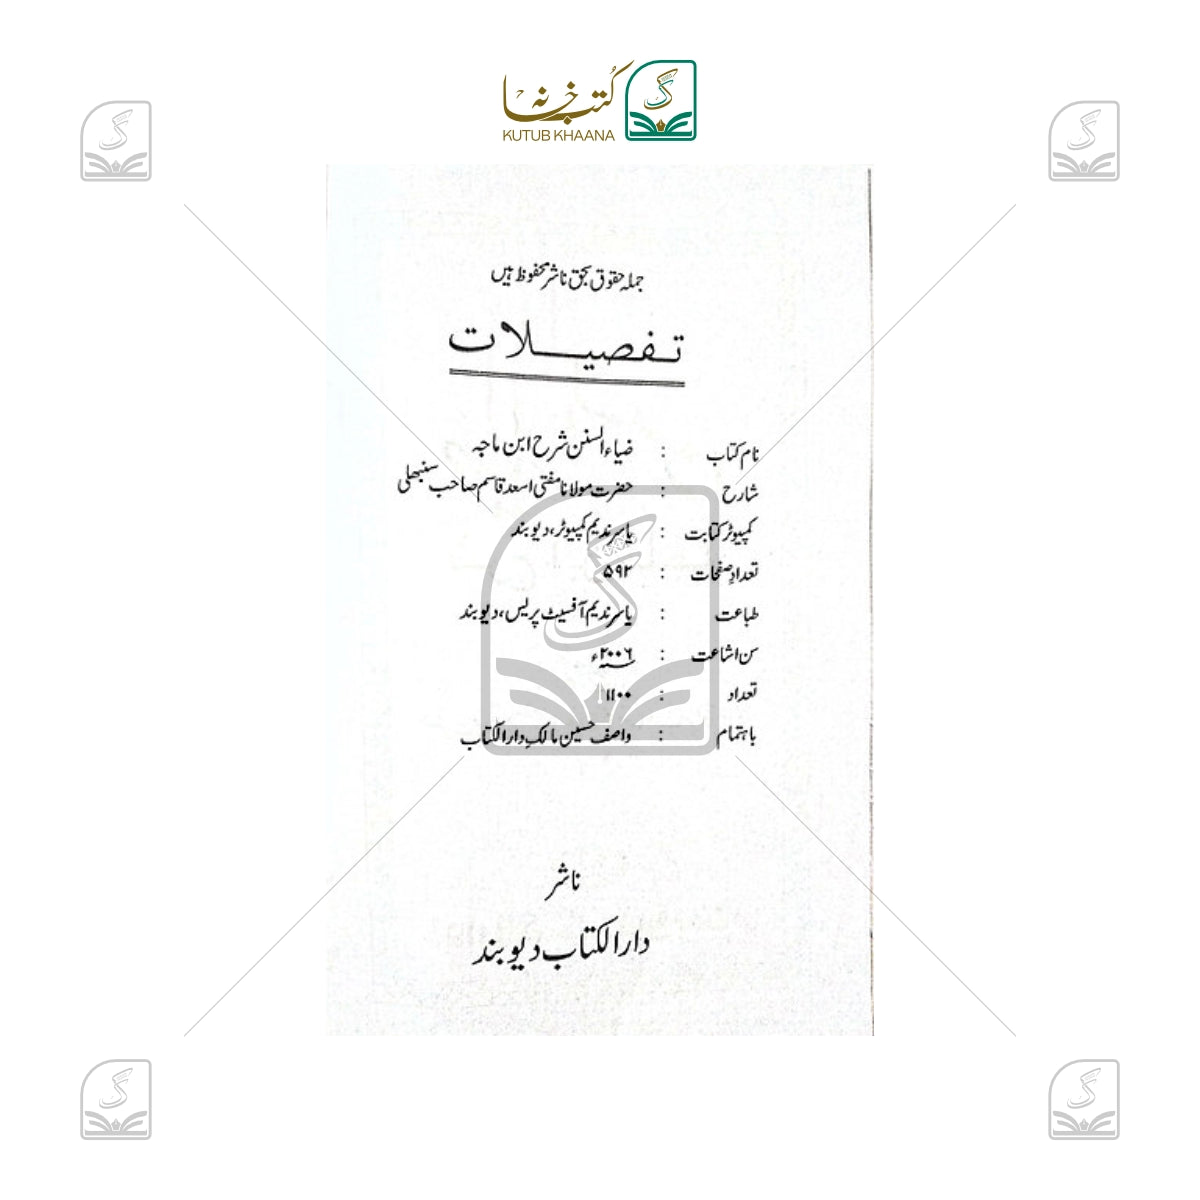 کتب خانہ
KUTUB KHAANA
جملہ حقوق بحق ناشر محفوظ ہیں
تفصیلات
نام کتاب : ضیاء السنن شرح ابن ماجہ
شارح : حضرت مولانا مفتی اسعد قاسم صاحب سنبھلی
کمپیوٹر کتابت : یاسر ندیم کمپیوٹر، دیوبند
تعداد صفحات : ۵۹۲
طباعت : یاسر ندیم آفسیٹ پریس، دیوبند
سن اشاعت : ۲۰۰۶ء
تعداد : ۱۱۰۰
باہتمام : واصف حسین مالک دار الکتاب
ناشر
دار الکتاب دیوبند